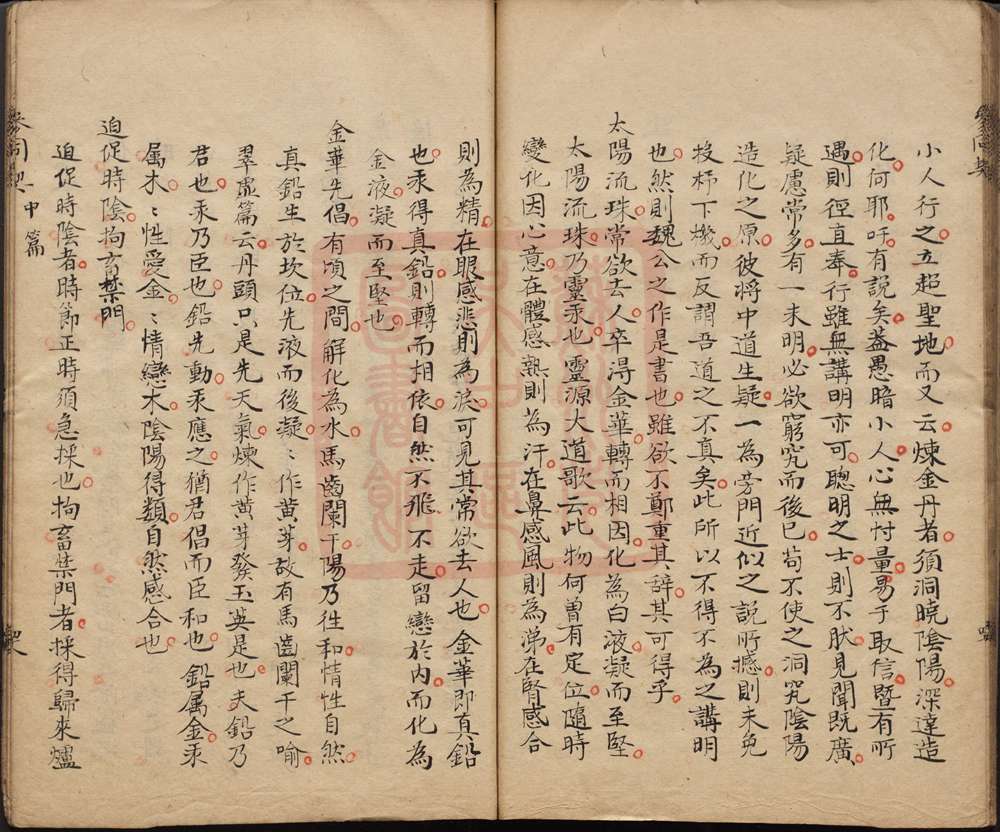 小人行之立超聖地而又云煉金丹者須洞曉陰陽深達造
化何耶吁有說矣蓋愚暗小人心無忖量易于取信暨有所
遇則徑直奉行雖無講明亦可聰明之士則不肰見聞既廣
疑慮常多有一未明必欲窮究而後已苟不使之洞究陰陽
造化之原彼將中道生疑一為旁門近似之說所撼則未免
投杼下機而反謂吾道之不真矣此所以不得不為之講明
也然則魏公之作是書也雖欲不鄭重其辞其可得乎
太陽流珠常欲去人卒得金華轉而相因化為白液凝而至堅
太陽流珠乃靈汞也靈源大道歌云此物何曽有定位隨時
變化因心意在體感熱則為汗在鼻感風則為涕在腎感合
則為精在眼感悲則為淚可見其常欲去人也金華即真鉛
也汞得真鉛則轉而相依自然不飛不走留戀於内而化為
金液凝而至堅也
金華先倡有頃之間解化為水馬齒闌干陽乃徃和情性自然
真鉛生於坎位先液而後凝〻作黃芽故有馬齒闌干之喻
翠虛篇云丹頭只是先天氣煉作黃芽發玉英是也夫鉛乃
君也汞乃臣也鉛先動汞應之猶君倡而臣和也鉛属金汞
属木〻性愛金〻情戀木陰陽得類自然感合也
迫促時陰拘畜禁門
迫促時陰者時節正時須急採也拘畜禁門者採得歸來爐
中篇